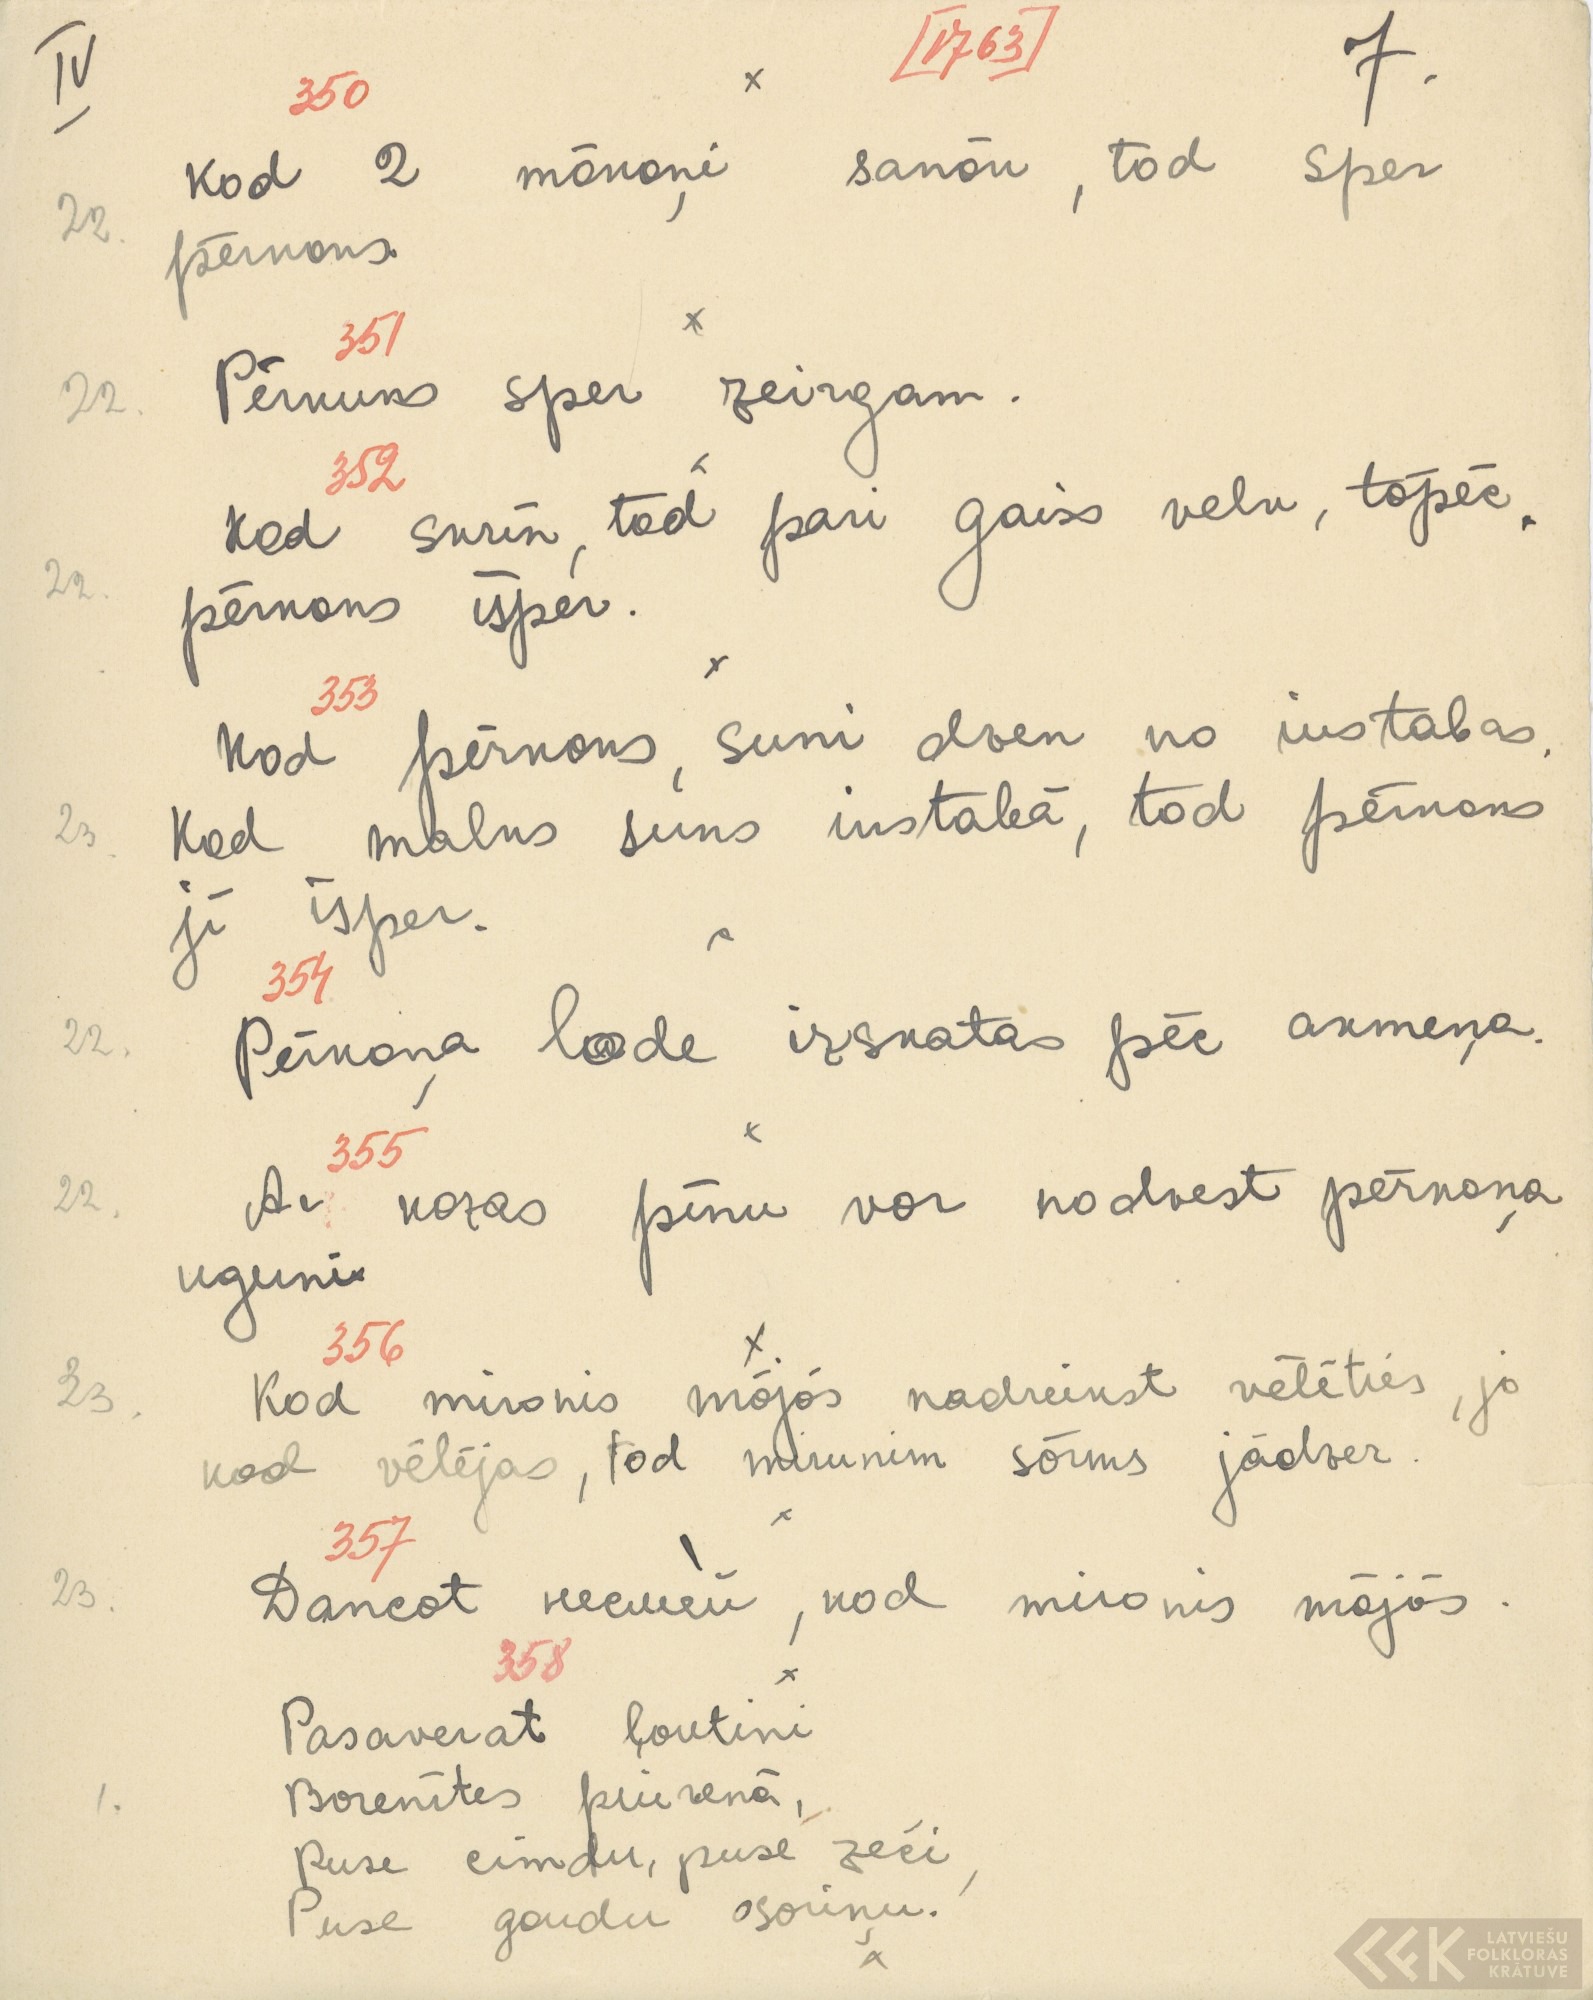 IV [1763] 7.
350 x
Kod 2 mōkoņi sanōk, tod sper
22.
pērkons
351 x
22. Pērkuns sper zeirgam.
352
Kod skrīn, tod pari gaiss velk, tōpēc
22. pērkons īsper.
353 x
Kod pērkons, suni dzen no iustabas.
23. Kod malns suns iustabā, tod pērkons
jī īsper.
354
22. Pērkoņa lode izskatas pēc akmeņa.
355 x
22. Ar kazas pīnu vor nodzest pērkoņa
uguni
356 x
23. Kod mironis mōjōs nadreikst vēlēties, jo
kod vēlējas, tod mirunim sōrms jādzer.
357 x
23. Dancot , kod mironis mōjōs.
358 x
Pasaverat ļoutini
1. Borenītes piurenā,
Puse cimdu, puse zeči,
Puse goudu osoriņu.
x
LATVIEŠU
FOLKLORAS
KRĀTUVE